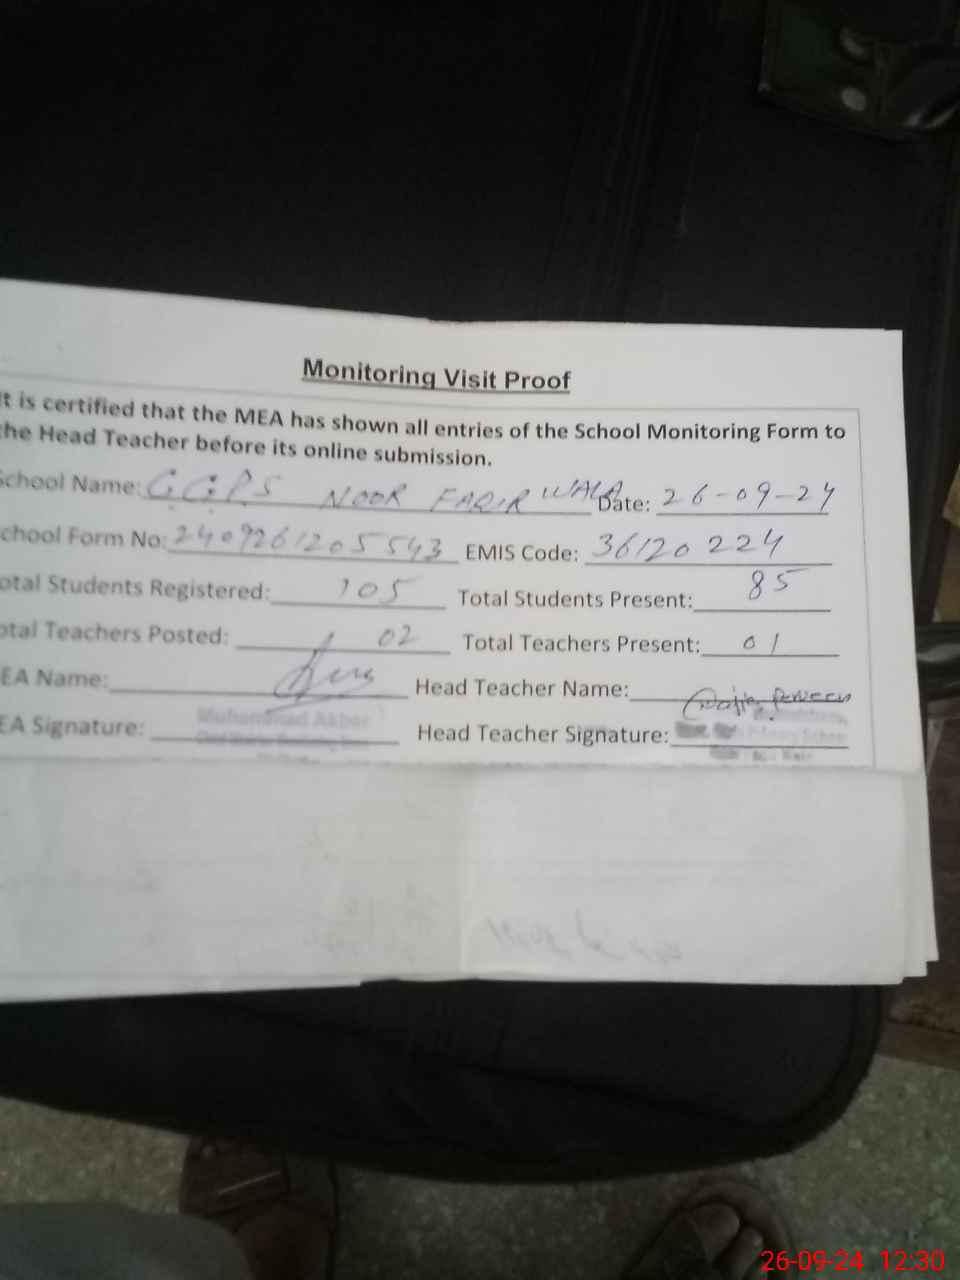 Monitoring Visit Proof
It is certified that the MEA has shown all entries of the School Monitoring Form to
the Head Teacher before its online submission.
School Name: GGPS NOOR FAQIR WALA Date: 26-09-24
chool Form No: 2409261205543 EMIS Code: 36120224
otal Students Registered: 105 Total Students Present: 85
otal Teachers Posted: 02 Total Teachers Present: 01
EA Name: Head Teacher Name: Perveen
EA Signature: Muhammad Akbar Head Teacher Signature:
26-09-24 12:30